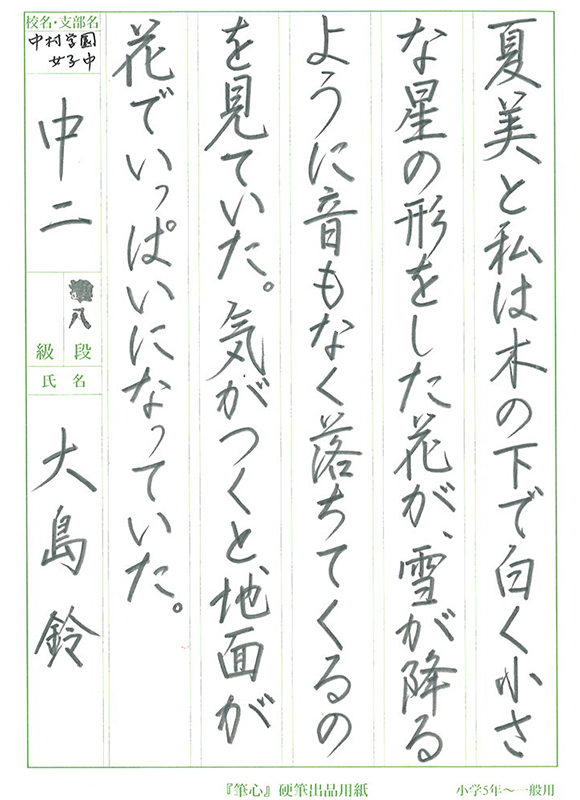 夏美と私は木の下で白く小さ
な星の形をした花が、雪が降る
ように音もなく落ちてくるの
を見ていた。気がつくと、地面が
花でいっぱいになっていた。
校名・支部名
中村学園
女子中
中二
八
段
級
氏名
大島鈴
『筆心』硬筆出品用紙
小学5年～一般用